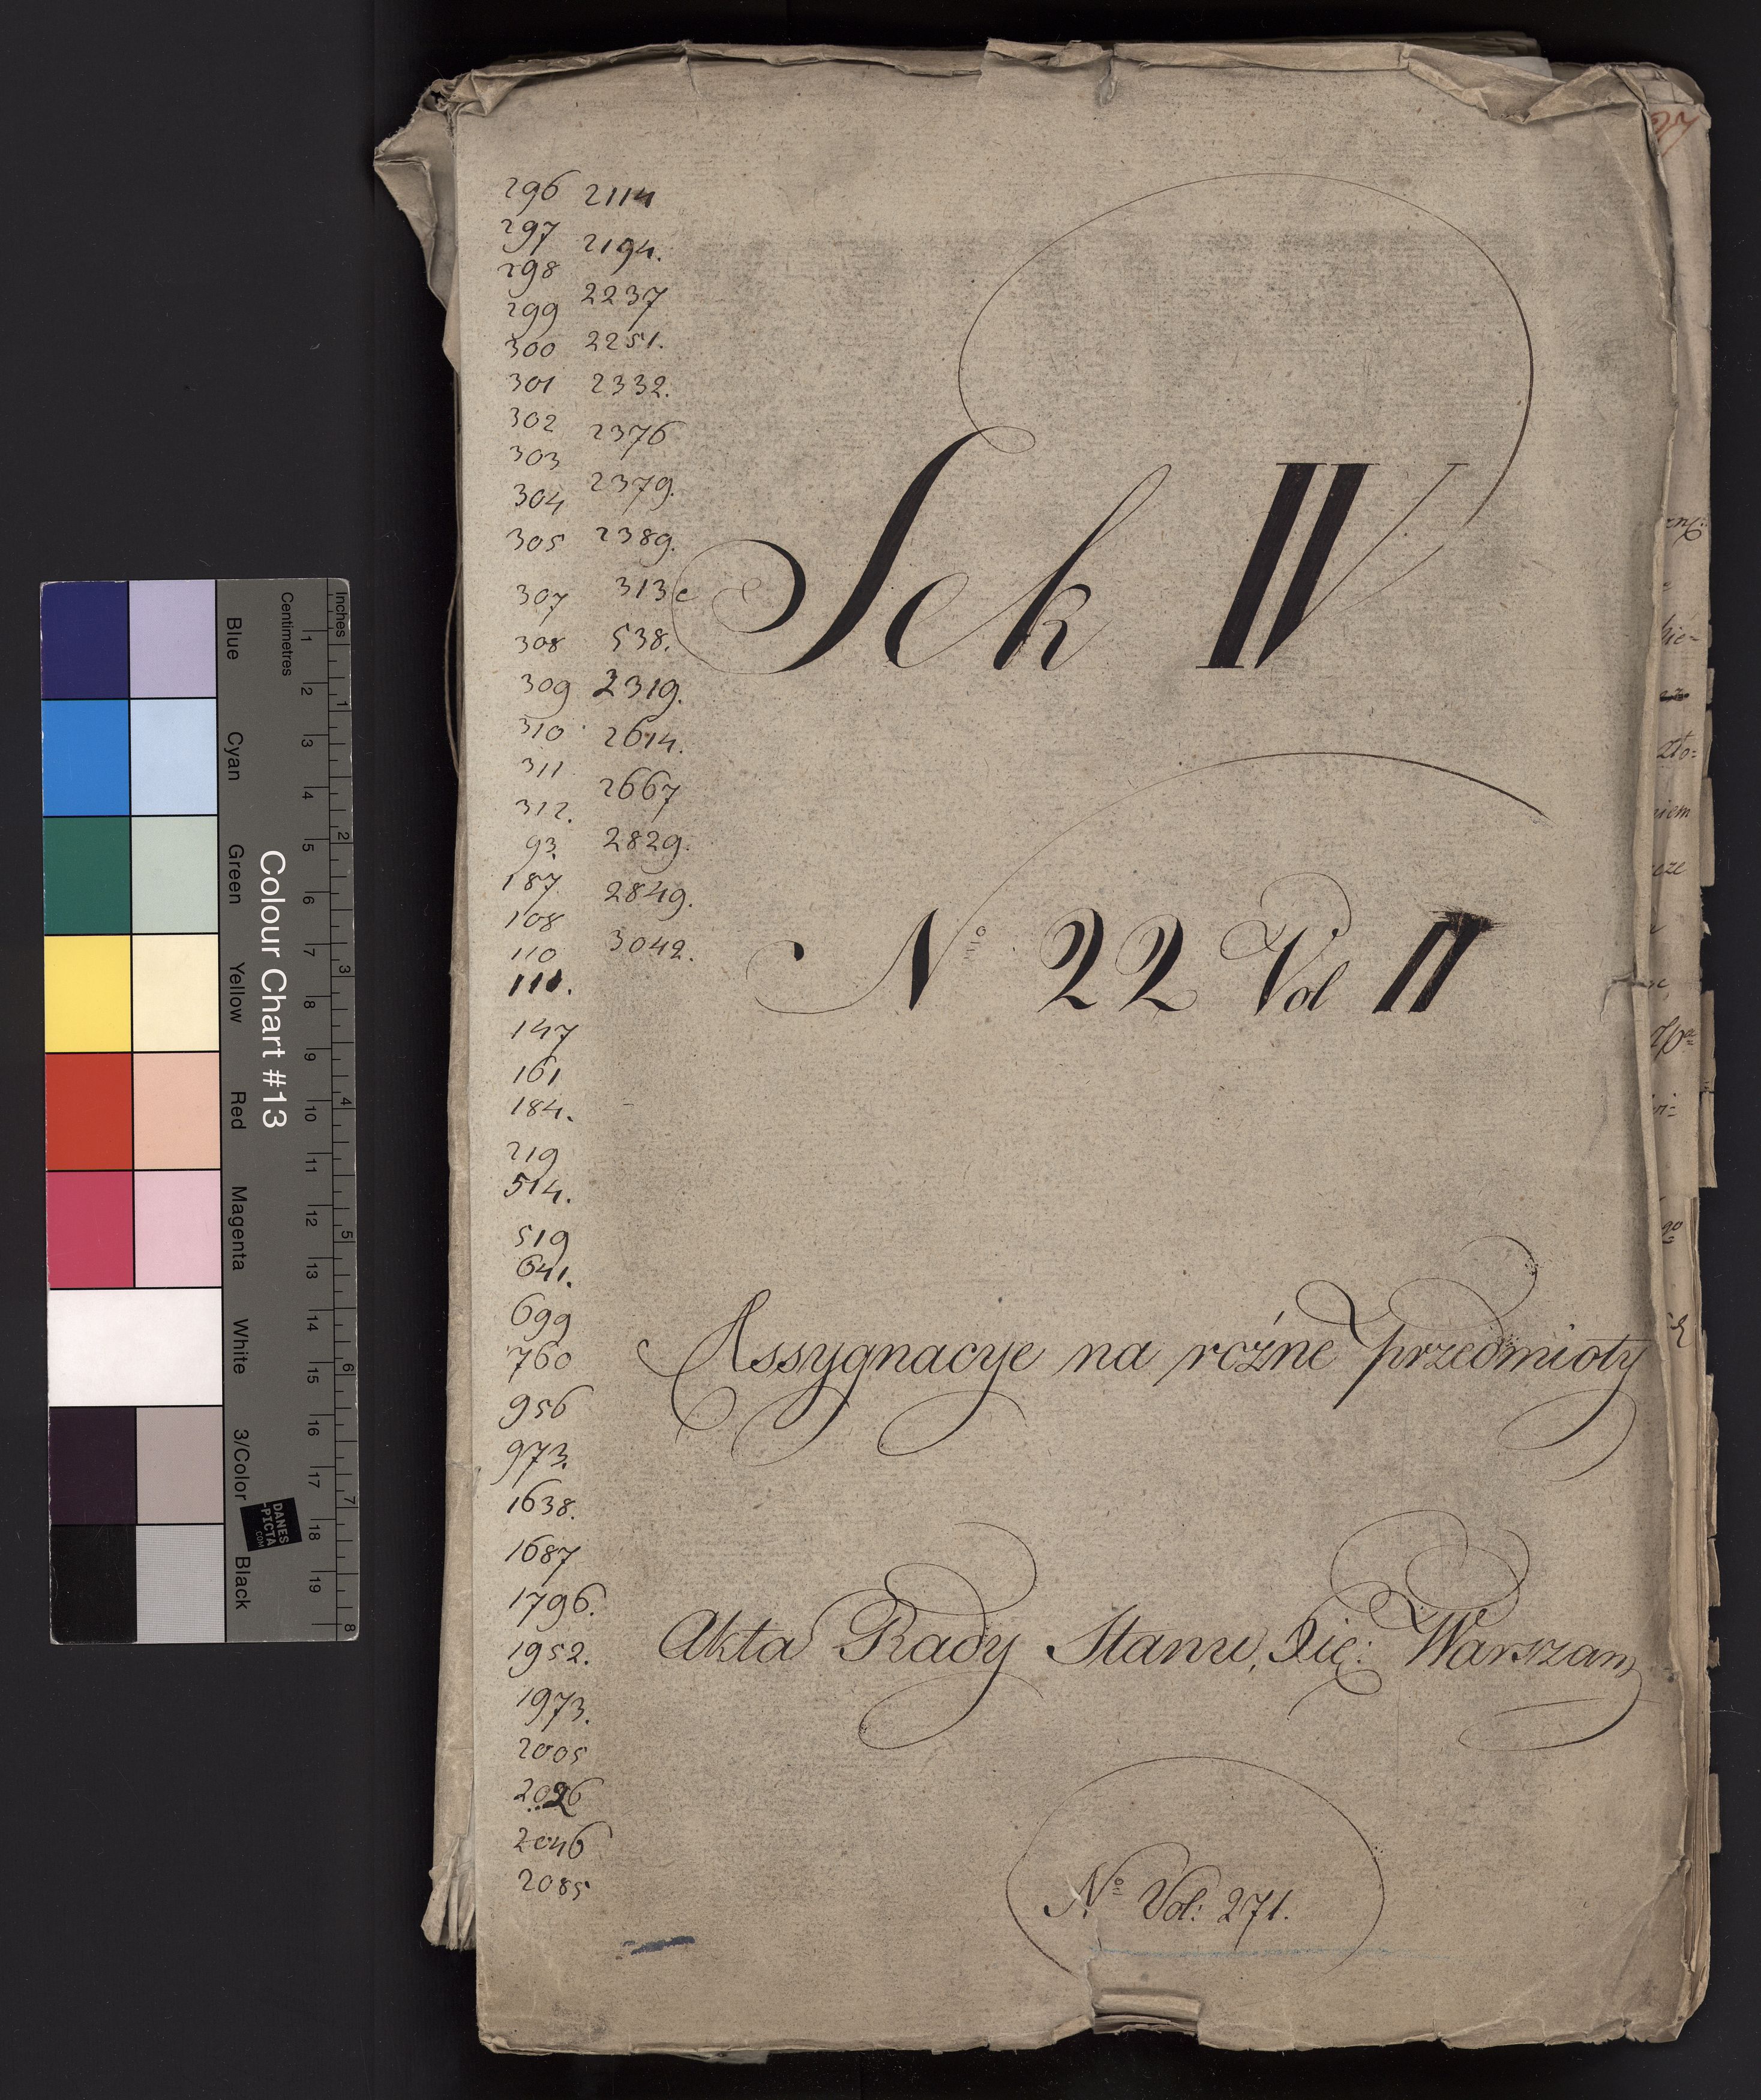 296 2114
297 2194.
298
299 2237
300 2251.
301 2332.
302 2376
303
304 2379.
305 2389.
307 313c
308 538.
309 2319.
310 2614.
311
312. 2667
93. 2829.
187 2849.
108
110 3042.
111.
147
161
184.
219
514.
519
641.
699
760
956
973.
1638.
1687
1796.
1952.
1973.
2005
2026
2046
2085
Sek IV
No 22 Vol II
Assygnacye na rożne przedmioty
Akta Rady Stanu, Xię: Warszaw
No Vol: 271.
Colour Chart #13
Inches
Centimetres
1 2 3 4 5 6 7 8 9 10 11 12 13 14 15 16 17 18 19
1 2 3 4 5 6 7 8
Blue
Cyan
Green
Yellow
Red
Magenta
White
3/Color
Black
DANES
-PICTA
.COM
niem